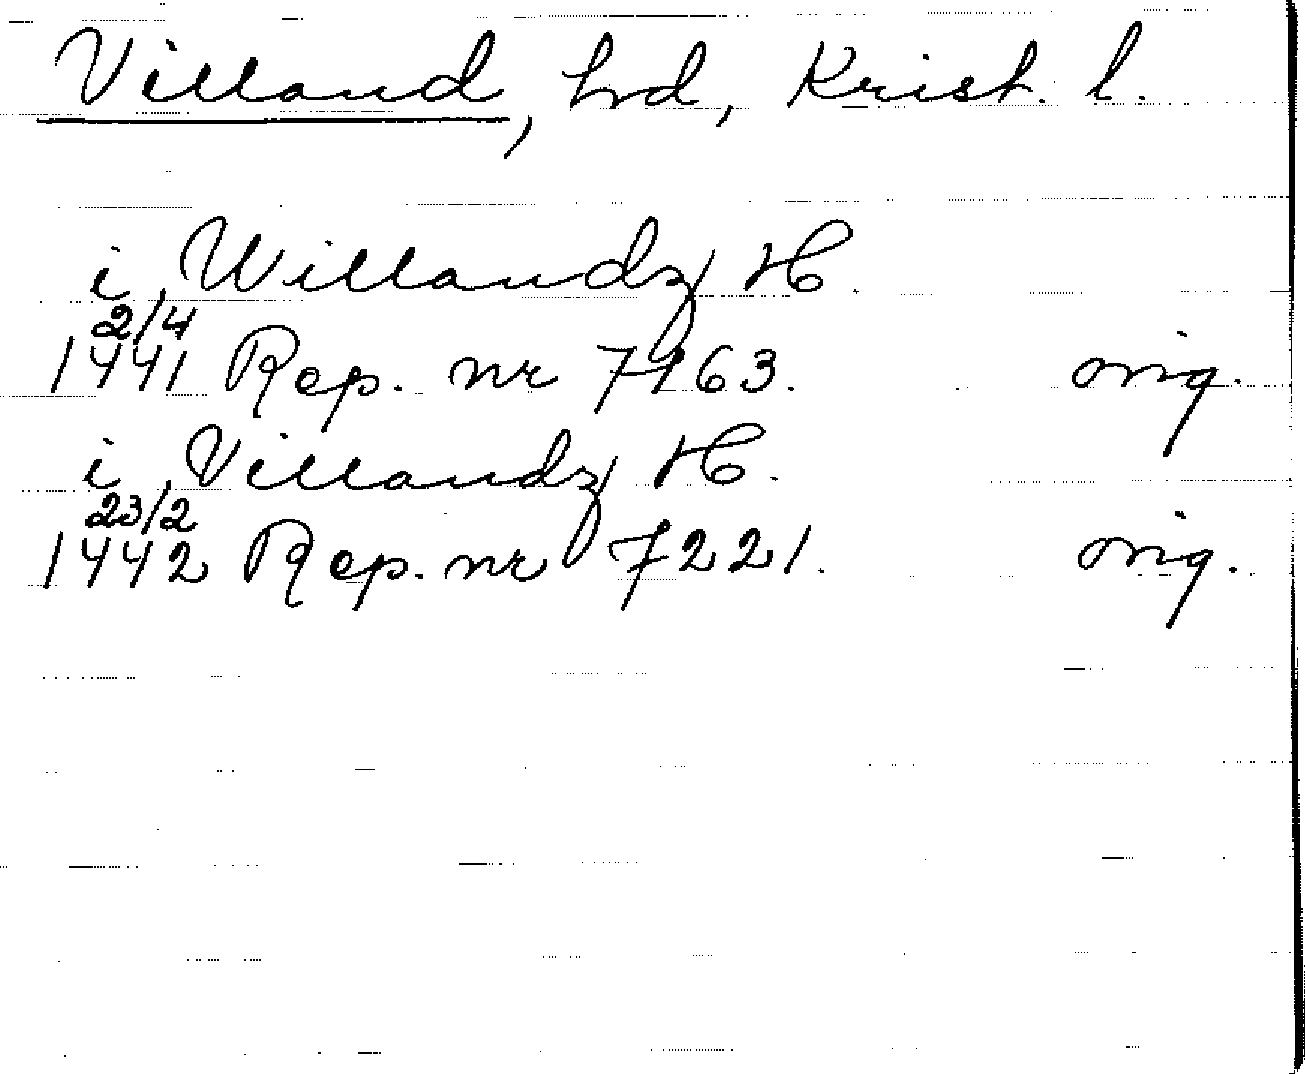 Villand, hd, Krist. l.
i Willandz H.
2/4
1441 Rep. nr 7163. orig.
i Villandz H.
23/2
1442 Rep. nr 7221. orig.